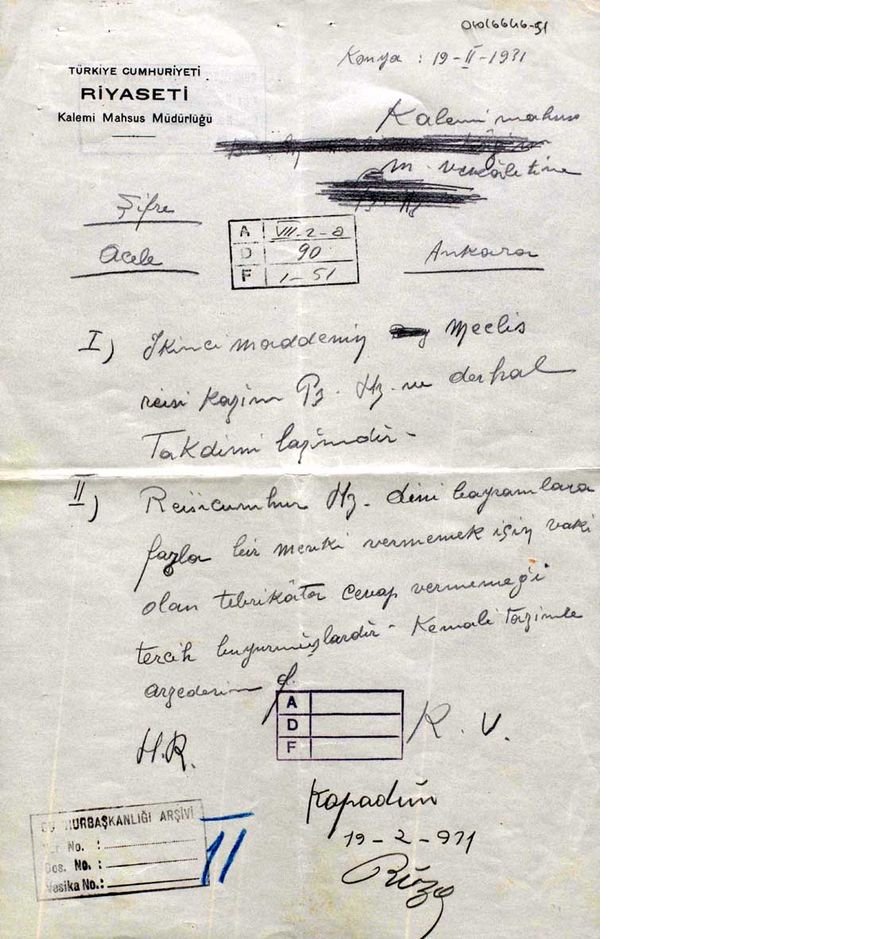 01016646-51
Konya : 19-II-1931
TÜRKİYE CUMHURİYETİ
RİYASETİ
Kalemi Mahsus Müdürlüğü
Kalemi mahsus
m. vekâletine
Şifre
Acele
A VII-2-a
D 90
F 1-51
Ankara
I) İkinci maddenin Meclis
reisi Kazim Pş. Hz.ne derhal
Takdimi lazimdir -
II) Reisicumhur Hz. dini bayramlara
fazla bir mevki vermemek için vaki
olan tebrikâta cevap vermemeği
tercih buyurmuşlardir - Kemali tazimle
arzederim
A
D
F
H.R.
R. V.
Kapadım
19-2-931
CUMHURBAŞKANLIĞI ARŞİVİ
No. :
Dos. No. :
Vesika No.: